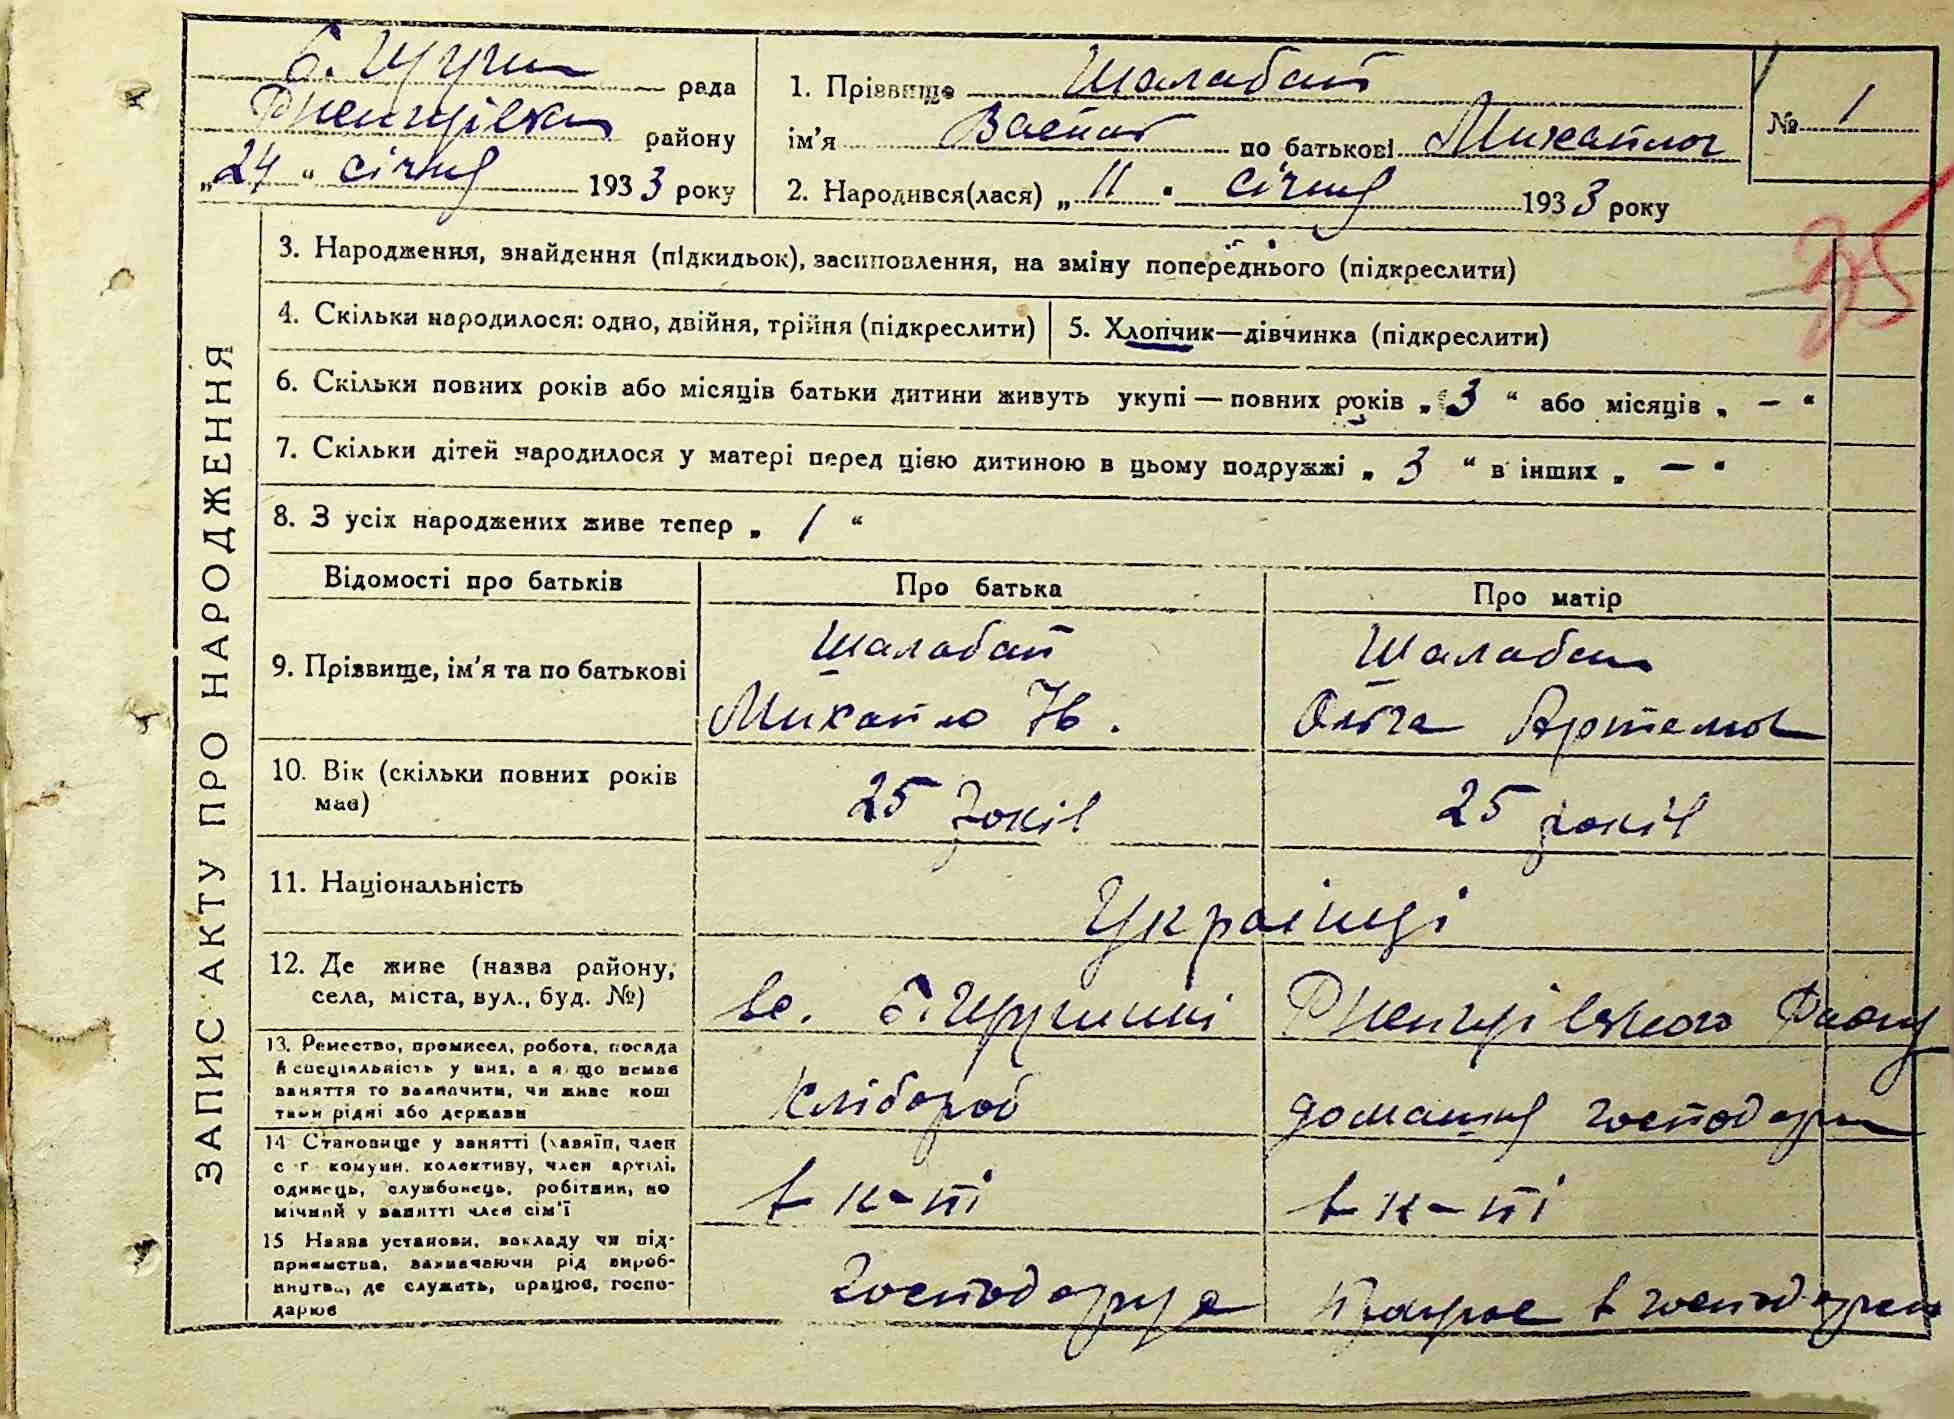 рада
району
„24“ січня 1933 року
1. Прізвище Шалабай
ім'я по батькові Михайлов
2. Народився(лася) „11“ січня 1933 року
№ 1
35
ЗАПИС АКТУ ПРО НАРОДЖЕННЯ
3. Народження, знайдення (підкидьок), засиповлення, на зміну попереднього (підкреслити)
4. Скільки народилося: одно, двійня, трійня (підкреслити)
5. Хлопчик—дівчинка (підкреслити)
6. Скільки повних років або місяців батьки дитини живуть укупі — повних років „3“ або місяців „—“
7. Скільки дітей народилося у матері перед цією дитиною в цьому подружжі „3“ в інших „—“
8. З усіх народжених живе тепер „1“
Відомості про батьків
Про батька
Про матір
9. Прізвище, ім'я та по батькові
Шалабай
Михайло Ів.
Шалабай
Ольга Артемов
10. Вік (скільки повних років
має)
25 років
25 років
11. Національність
Українці
12. Де живе (назва району,
села, міста, вул., буд. №)
13. Ремество, промисел, робота, посада
й спеціяльність у них, а якщо немає
заняття то зазначити, чи живе кош
тами рідні або держави
хлібороб
домашня господарка
14 Становище у занятті (хазяїн, член
с г комуни, колективу, член артілі,
одинець, службовець, робітник, по
мічний у занятті член сім'ї
в к-ті
в к-ті
15 Назва установи, закладу чи під-
приємства, зазначаючи рід вироб-
ництва, де служить, працює, госпо-
дарює
господарує
працює в господарст